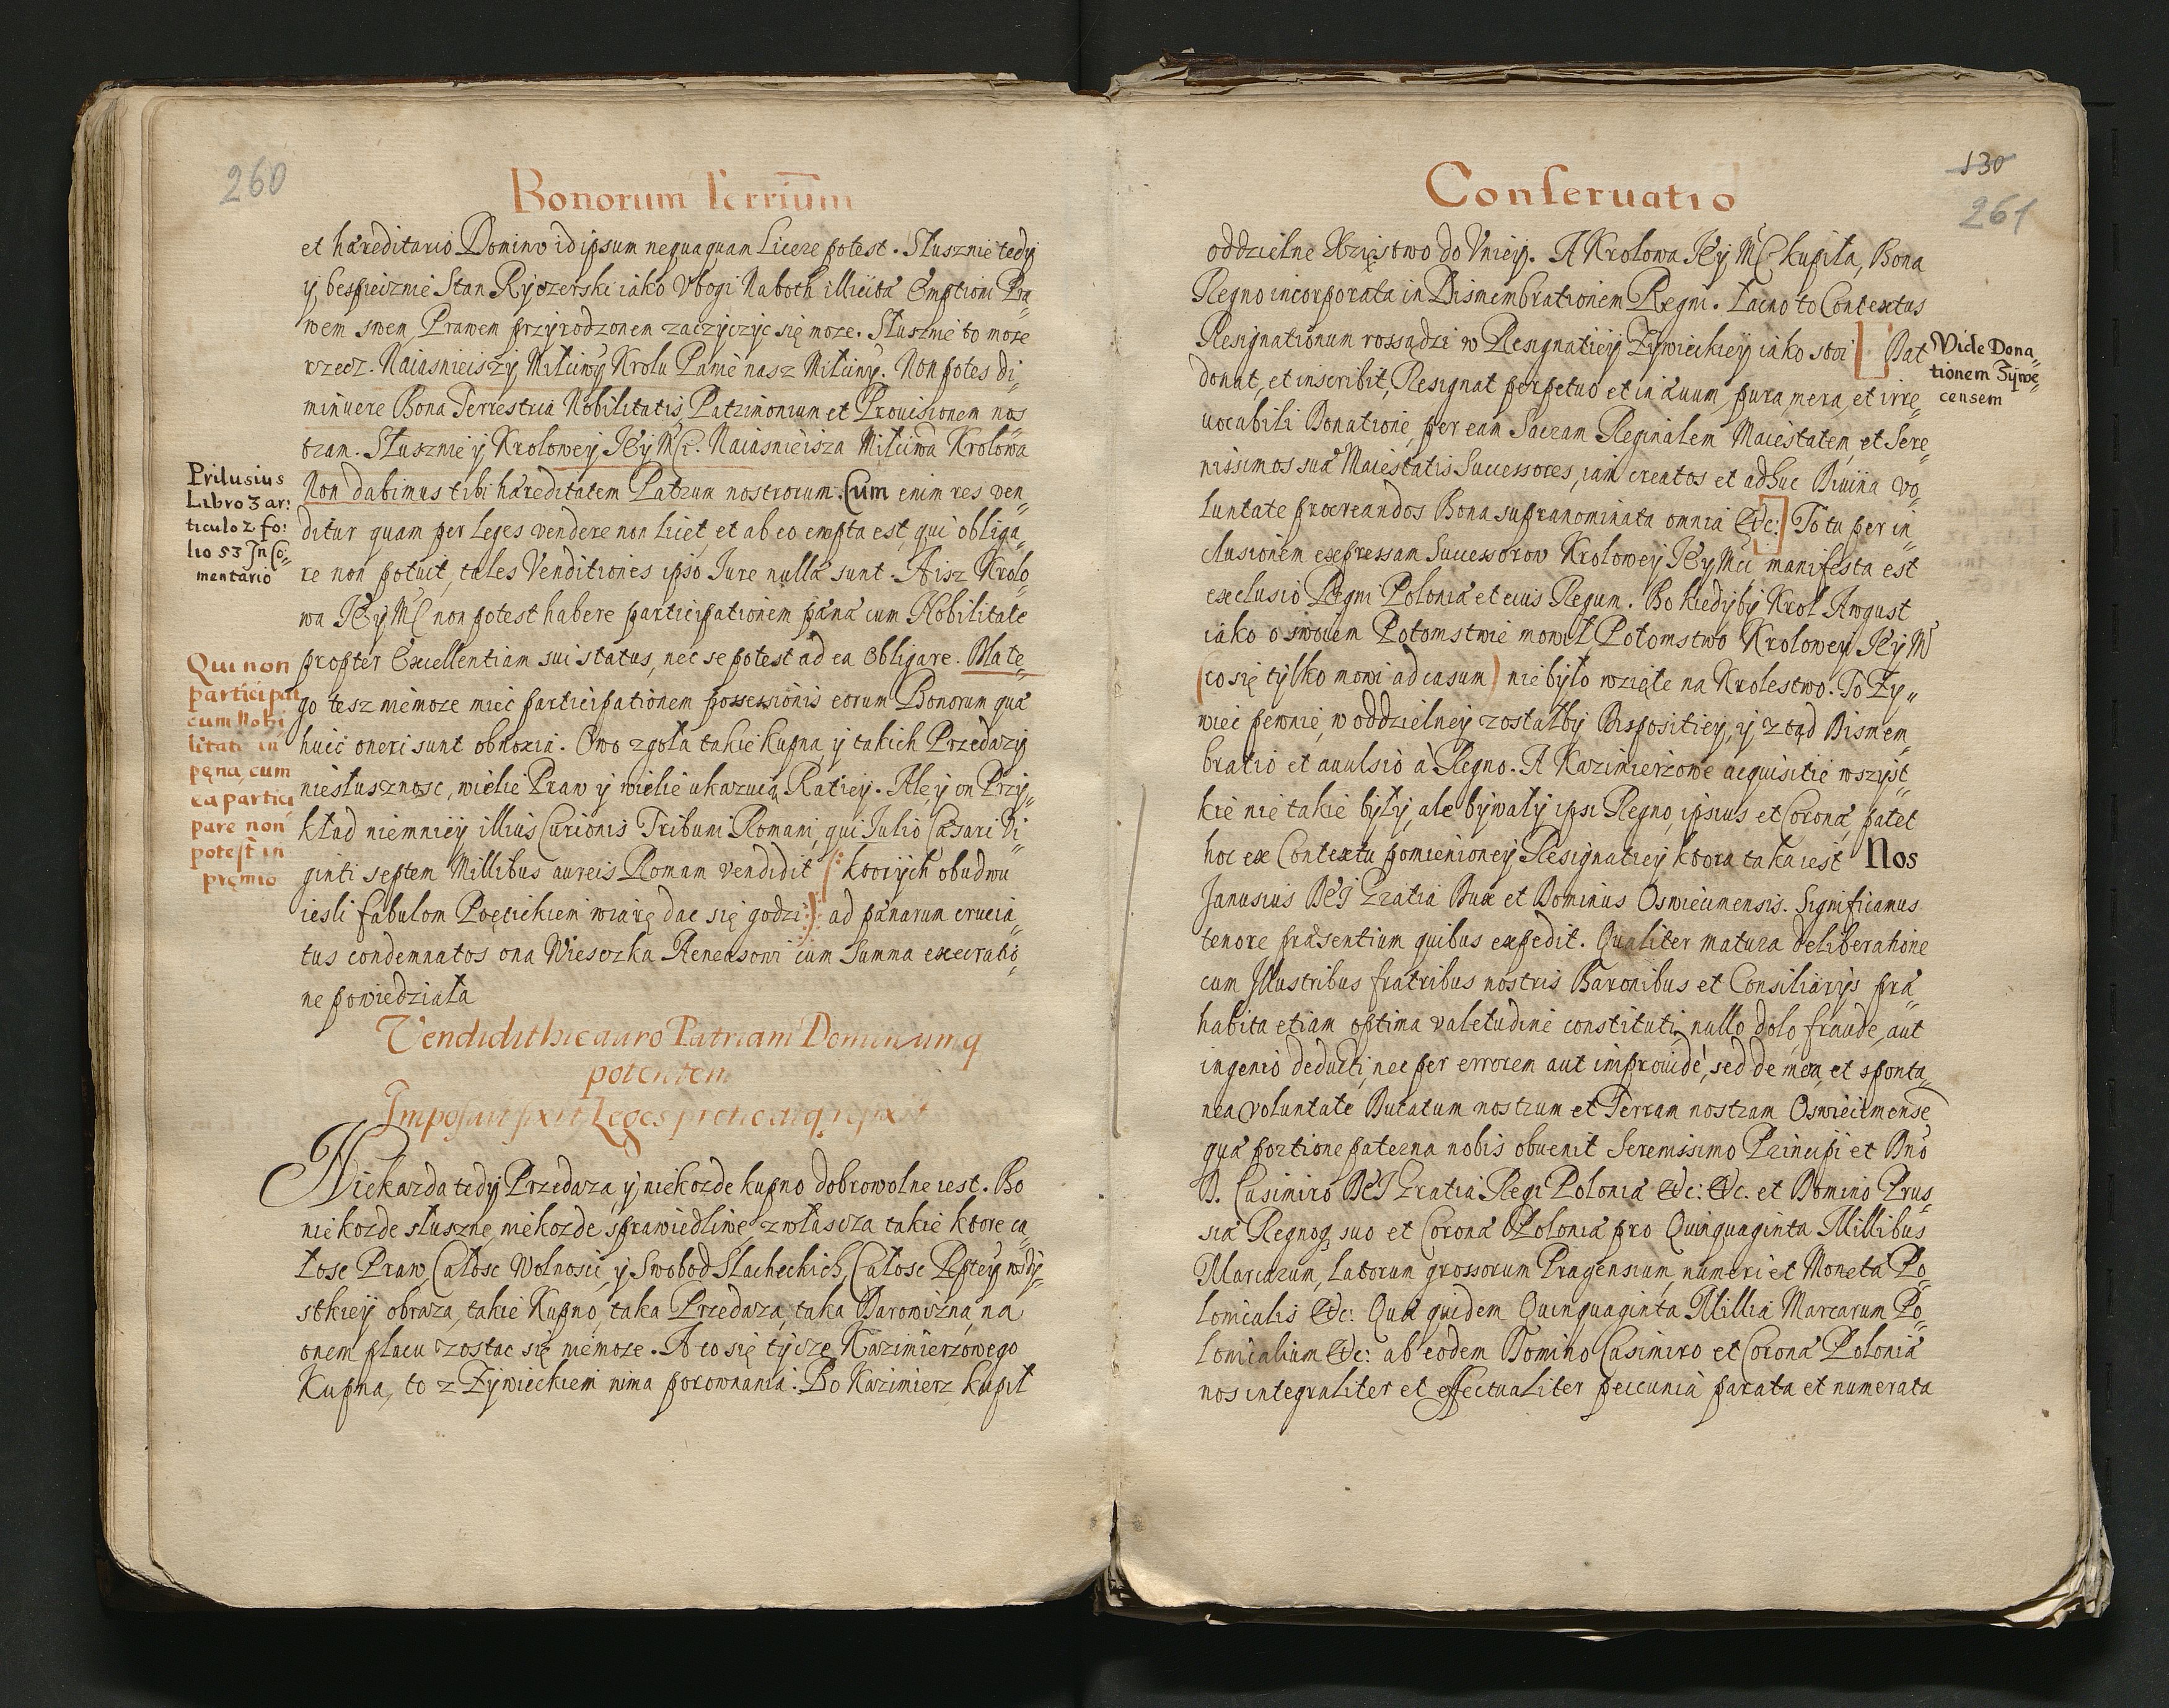 260
Bonorum Terrium
et hæreditario Domino id ipsum nequaquam Licere potest. Słusznie tedy
y bespiecznie Stan Ryczerski iako Vbogi Naboth illicitæ Emptioni Pra„
wem swem, Prawem przyrodzonem zaczyczyc się może. Słusznie to może
rzecz. Naiasnieiszy Miłciwy Krolu Panie nasz Miłciwy. Non potes di„
minuere Bona Terrestria Nobilitatis, Patrimonium et Prouisionem nos„
tram. Słusznie y Krolowey JEy Mci. Naiasnieisza Miłciwa Krolowa
Non dabimus tibi hæreditatem Patrum nostrorum. Cum enim res ven„
ditur quam per Leges vendere non liciet, et ab eo empta est, qui obliga„
re non potuit, tales Venditiones ipso Jure nullæ sunt. A isz Krolo„
wa JEy Mc non potest habere participationem pænæ cum Nobilitate
propter Excellentiam sui status, nec se potest ad ea obligare. Dla te„
go tesz niemoze mieć participationem possessionis eorum Bonorum quæ
huic oneri sunt obnoxia. Owo zgoła takie kupna, y takich Przedaży
niesłusznosc, wielie Praw y wielie ukazuią Ratiey. Ale y on Przy„
kład niemniey illius Curionis Tribuni Romani, qui Julio Cæsari Vi„
ginti septem Millibus aureis Romam vendidit (: ktorych obudwu
iesli fabulom Poetickiem wiarę dac się godzi :) ad pænarum crucia„
tus condemnatos ona Wiesczka Aeneasowi cum Summa execratio„
ne powiedziała
Vendidit hic auro Patriam Dominumq
potentem
Imposuit fixit Leges pretio atq refixit
Niekazda tedy Przedaza, y niekozde kupno dobrowolne iest. Bo
niekozde słuszne, niekozde sprawiedliwe, zwłascza takie ktore ca„
łosc Praw, Całosc Wolnosci, y Swobod Slacheckich, Całosc Rptey wszy„
stkiey obraza, takie Kupno, taka Przedaza, taka Darowizna, na
onem placu zostac się niemoze. A co się tycze Kazimierzowego
Kupna, to z Zywieckiem nima porownania. Bo Kazimierz kupił
Prilusius
Libro 3 ar:
ticulo 2 fo:
lio 53 In Co„
mentario
Qui non
participat
cum Nobi
litate in
pęna, cum
ea partici
pare non
potest in
pręmio
130
261
Conseruatio
oddzielne Xzięstwo do Vniey. A Krolowa JEy Mc kupiła, Bona
Regno incorporata in Dismembrationem Regni. Łacno to Contextus
Resignationum rossądzi w Resignatiey Zywieckiey iako stoi [ Dat
donat, et inscribit, Resignat perpetuo et in æuum, pura, mera, et irre„
uocabili Donatione, per eam Sacram Reginalem Maiestatem, et Sere„
nissimos suæ Maiestatis Successores, iam creatos et adhuc Diuina vo„
luntate procreandos Bona supranominata omnia &c: ] To tu per in„
clusionem expressam Successorow Krolowey JEy Mci manifesta est
exclusio Regni Poloniæ et eius Regum. Bo kiedyby Krol August
iako o swoiem Potomstwie mowił, Potomstwo Krolowey JEy M
(co się tylko mowi ad casum) nie było wzięte na Krolestwo. To Zy„
wiec pewnie, w oddzielney zostałby Dispositiey, y ztąd Dismem„
bratio et auulsio à Regno. A Kazimierzowe acquisitie wszyst„
kie nie takie były, ale bywały ipsi Regno, ipsius et Coronæ, patet
hoc ex Contextu pomienioney Resignatiey ktora taka iest Nos
Janusius DEI Gratia Dux et Dominus Oswiecimensis. Significamus
tenore præsentium quibus expedit. Qualiter matura deliberatione
cum Illustribus fratribus nostris Baronibus et Consiliarijs præ„
habita etiam optima valetudine constituti, nullo dolo, fraude, aut
ingenio deducti, nec per errorem aut improuide, sed de mera, et sponta„
nea voluntate Ducatum nostrum et Terram nostram Oswiecimense
quæ portione paterna nobis obuenit Serenissimo Principi et Dno
D. Casimiro DEI Gratia Regi Poloniæ &c: &c. et Domino Prus„
siæ Regnoq suo et Coronæ Poloniæ pro Quinquaginta Millibus
Marcarum, Latorum grossorum Pragensium, numeri et Monetæ Po„
lonicalis &c: Quæ quidem Quinquaginta Millia Marcarum Po„
lonicalium &c: ab eodem Domino Casimiro et Corona Poloniæ
nos integraliter et effectualiter peccunia parata et numerata
Vide Dona„
tionem Zywe„
censem